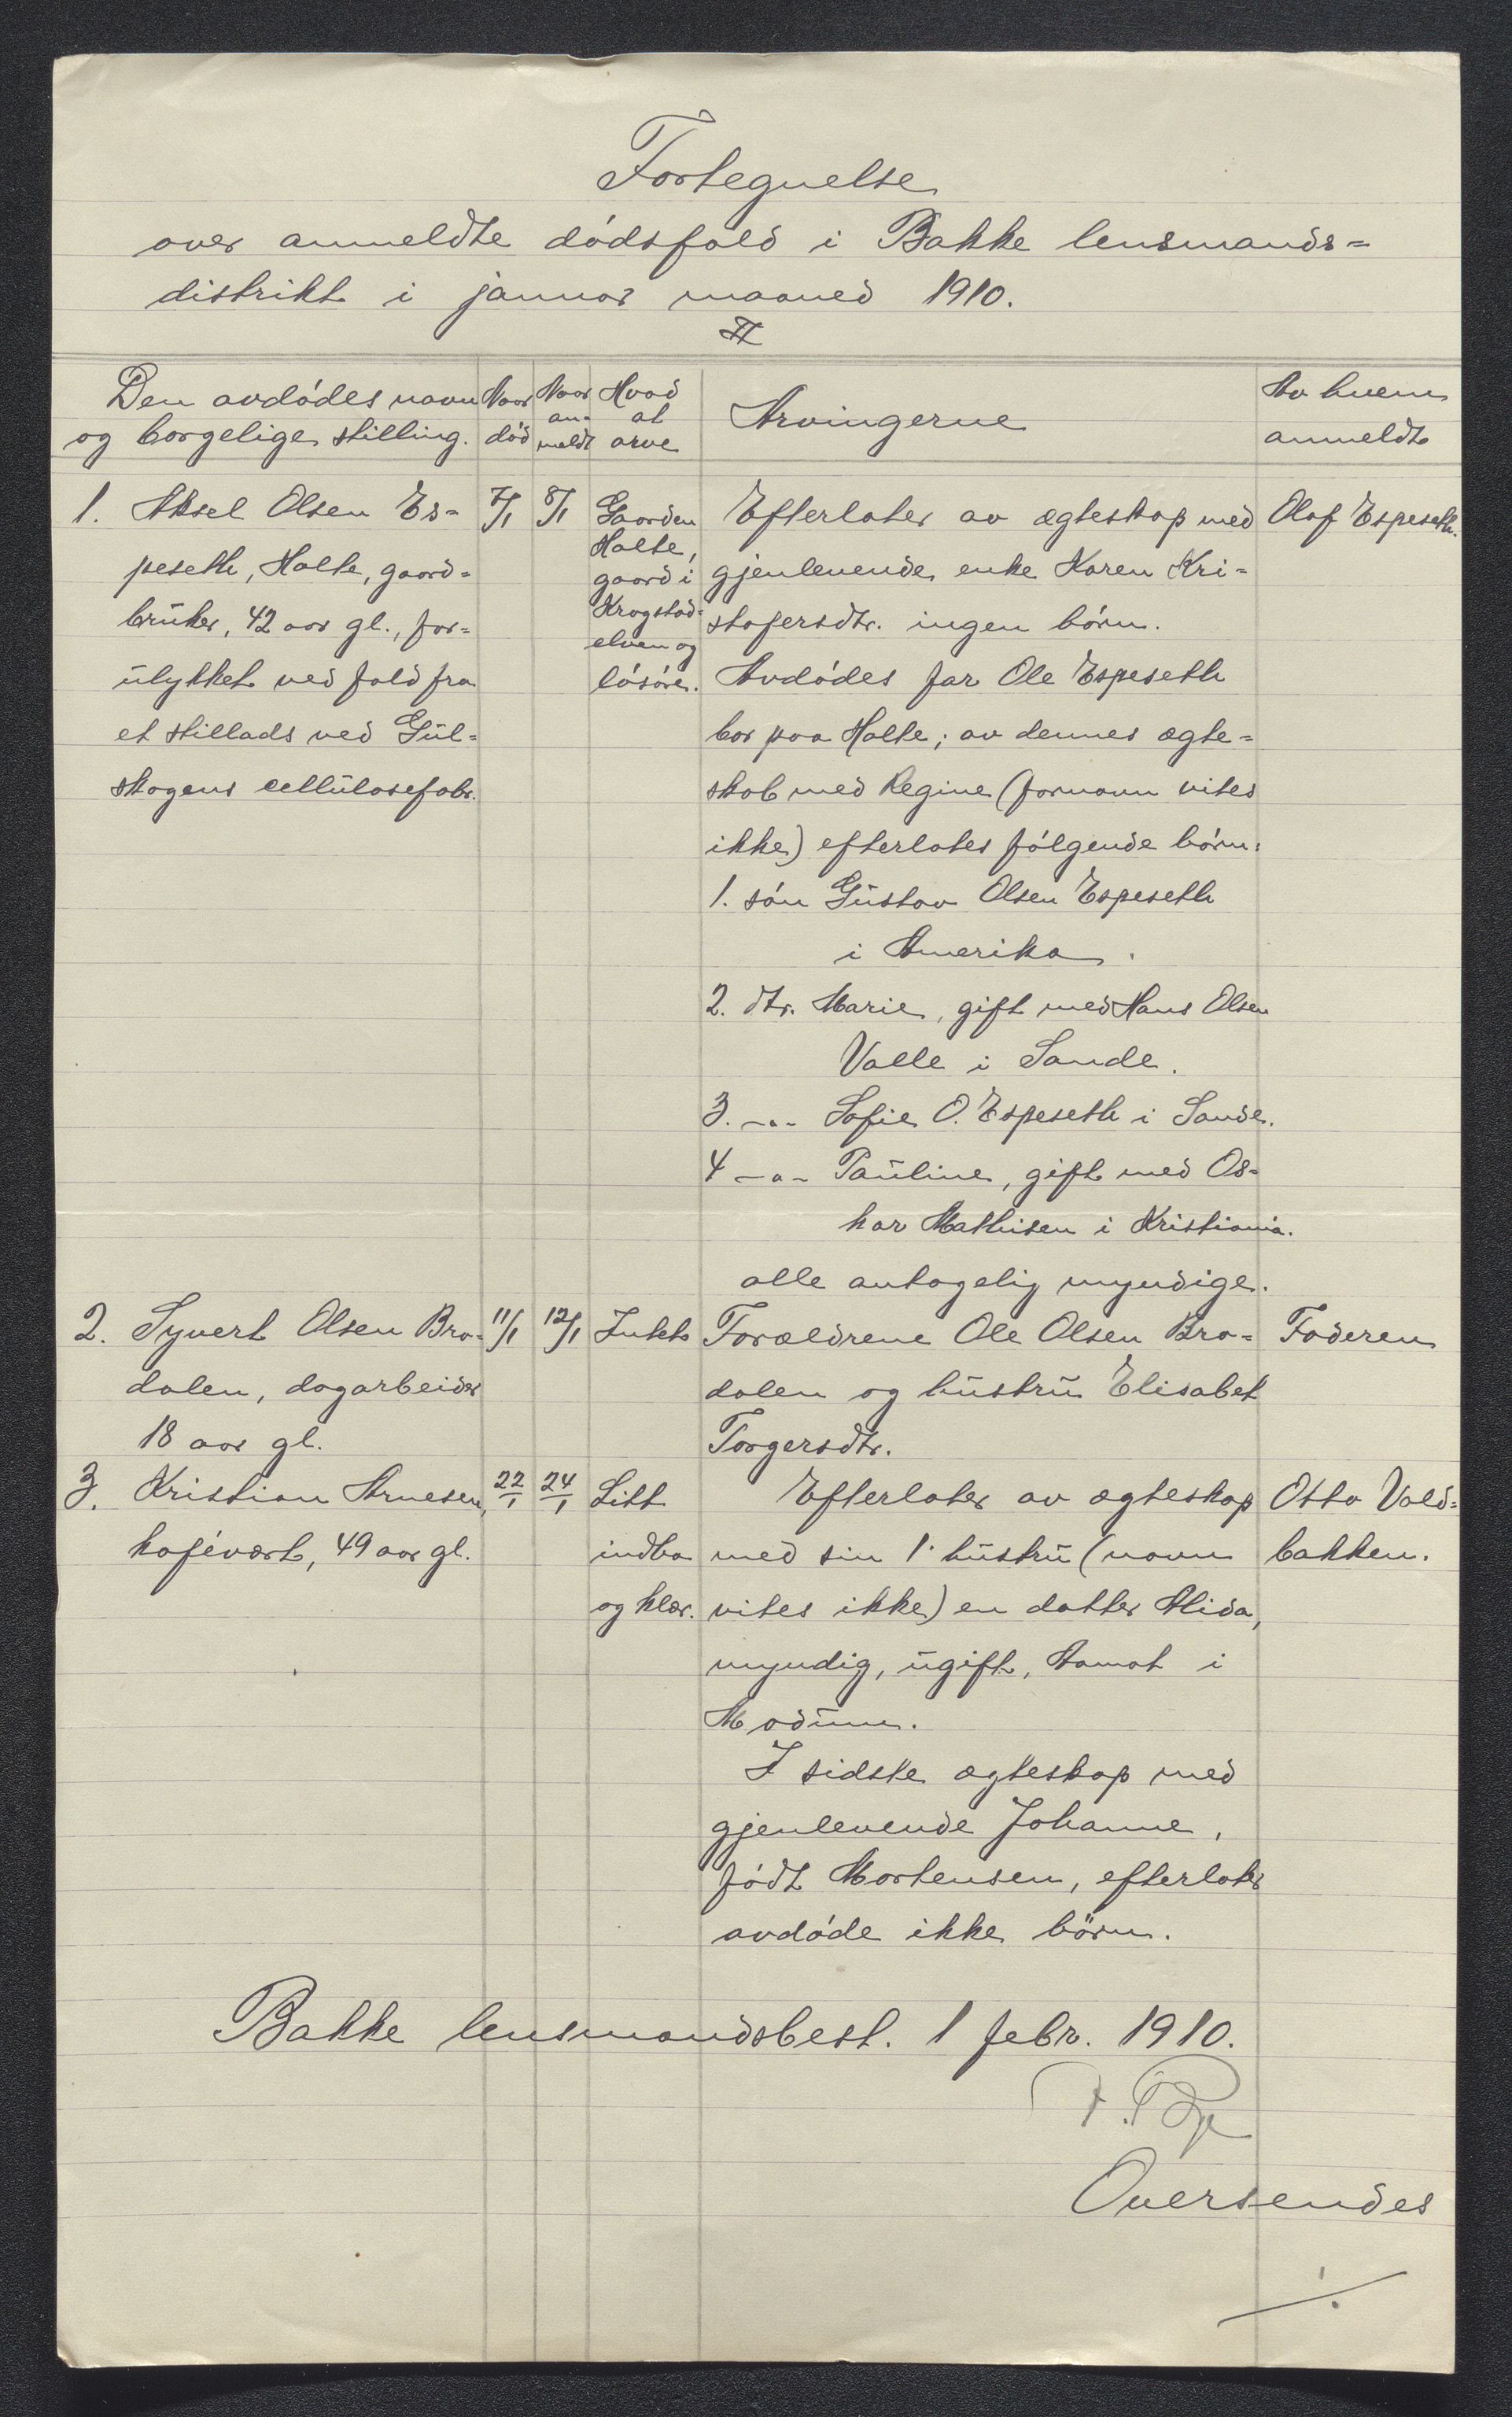 Fortegnelse
over anmeldte dødsfald i Bakke lensmands=
distrikt i januar maaned 1910.
Den avdødes navn
og borgelige stilling.
Naar
død
Naar
an=
meldt
Hvad
at
arve
Arvingerne
Av hvem
anmeldt
1. Aksel Olsen Es=
peseth, Holte, gaard=
bruker, 42 aar gl., for=
ulykket ved fald fra
et stillads ved Gul=
skogens cellulosefabr.
7/1
8/1
Gaarden
Holte,
gaard i
Krogstad=
elven og
løsøre.
Efterlater av ægteskap med
gjenlevende enke Karen Kri=
stofersdtr. ingen børn.
Avdødes far Ole Espeseth
bor paa Holte; av dennes ægte=
skab med Regine (fornavn vites
ikke) efterlates følgende børn:
1. søn Gustav Olsen Espeseth
i Amerika.
2. dtr. Marie, gift med Hans Olsen
Valle i Sande.
3. -"- Sofie O. Espeseth i Sande.
4 -"- Pauline, gift med Os=
kar Mathisen i Kristiania.
alle antagelig myndige.
Olaf Espeseth.
2. Syvert Olsen Bra=
dalen, dagarbeider
18 aar gl.
11/1
12/1
Intet
Forældrene Ole Olsen Bra=
dalen og hustru Elisabet
Torgersdtr.
Faderen
3. Kristian Arnesen,
kafévært, 49 aar gl.
22/1
24/1
Litt
indbo
og klær.
Efterlater av ægteskap
med sin 1. hustru (navn
vites ikke) en datter Alida,
myndig, ugift, Aamot i
Modum.
I sidste ægteskap med
gjenlevende Johanne,
født Mortensen, efterlater
avdøde ikke børn.
Otto Vald=
bakken.
Bakke lensmandsbest. 1 febr. 1910.
Oversendes